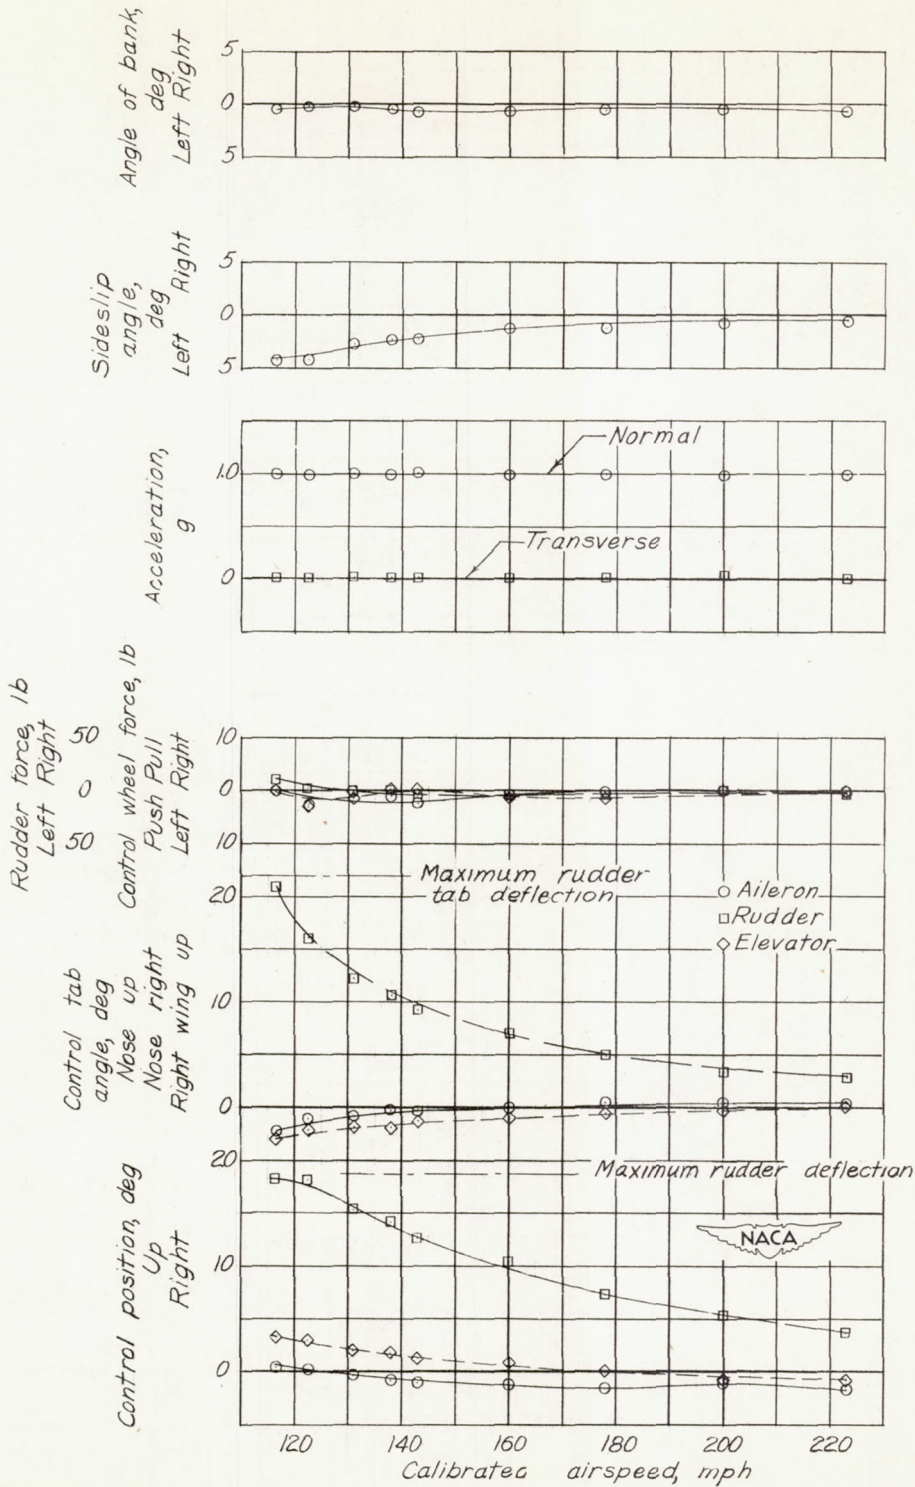 Angle of bank,
deg
Left Right
5
0
5
Sideslip
angle,
deg
Left Right
5
0
5
Acceleration,
g
1.0
0
Normal
Transverse
Rudder force, lb
Left Right
50
0
50
Control wheel force, lb
Push Pull
Left Right
10
0
10
Maximum rudder
tab deflection
Aileron
Rudder
Elevator
Control tab
angle, deg
Nose up
Nose right
Right wing up
20
10
0
Maximum rudder deflection
NACA
Control position, deg
Up
Right
20
10
0
120 140 160 180 200 220
Calibrated airspeed, mph